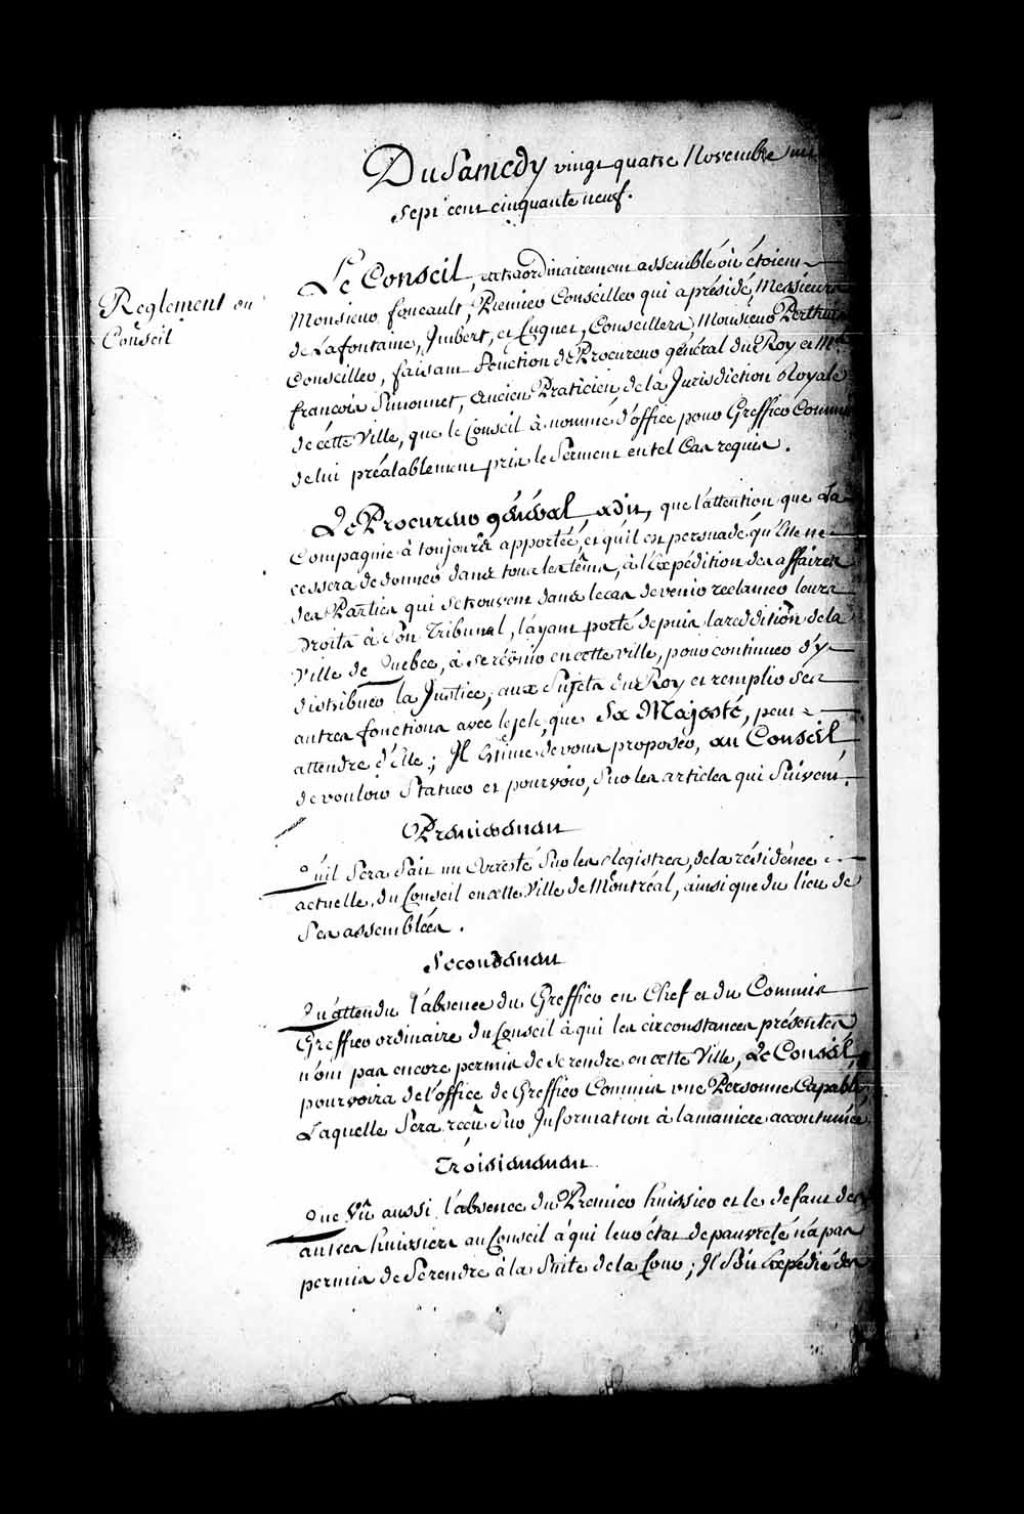 Du Samedy vingt quatre Novembre mil
sept cent cinquante neuf.
Reglement au
Conseil
Le Conseil, extraordinairement assemblé où étoient
Monsieur foucault, Premier Conseiller qui a présidé, Messieurs
de Lafontaine, Imbert, et Cuguet, Conseillers, Monsieur Perthuis
Conseiller, faisant fonction de Procureur général du Roy et Mre.
françois Simonnet, Ancien Praticien de la Jurisdiction Royale
de cette Ville, que le Conseil à nommé d'office pour Greffier Commis
de lui préalablement pris le Serment en tel Cas requis.
Le Procureur général adit, que l'attention que Sa
Compagnie à toujours apportée, et qu'il est persuadé qu'Elle ne
cessera de donner dans tous les têms, à l'Expédition des affaires
des Parties qui se trouvent dans le cas de venir reclamer leurs
Droits à Son Tribunal, l'ayant porté depuis la reddition de la
Ville de Quebec, à se réunir en cette ville, pour continuer d'y
distribuer la Justice, aux Sujets du Roy et remplir ses
autres fonctions avec le zele, que Sa Majesté, peut
attendre d'Elle; Il Estime devoir proposer, au Conseil,
de vouloir Statuer et pourvoir, Sur les articles qui Suivent.
Premierement
Quil Sera fait un Arresté Sur les Registres, de la résidence
actuelle du Conseil en cette Ville de Montréal, ainsi que du lieu de
Ses assemblées.
Secondement
Qu'attendu l'absence du Greffier en Chef et du Commis
Greffier ordinaire du Conseil à qui les circonstances présentes
n'ont pas encore permis de se rendre en cette Ville, Le Conseil,
pourvoira de l'office de Greffier Commis une Personne Capable
Laquelle Sera reçûë Sur Information à la maniere accoutumée
Troisiemement
Que Vû aussi l'absence du Premier huissier et le defaut des
autres huissiers au Conseil à qui leur état de pauvreté n'a pas
permis de Se rendre à la Suite de la Cour; Il Soit Expédié des